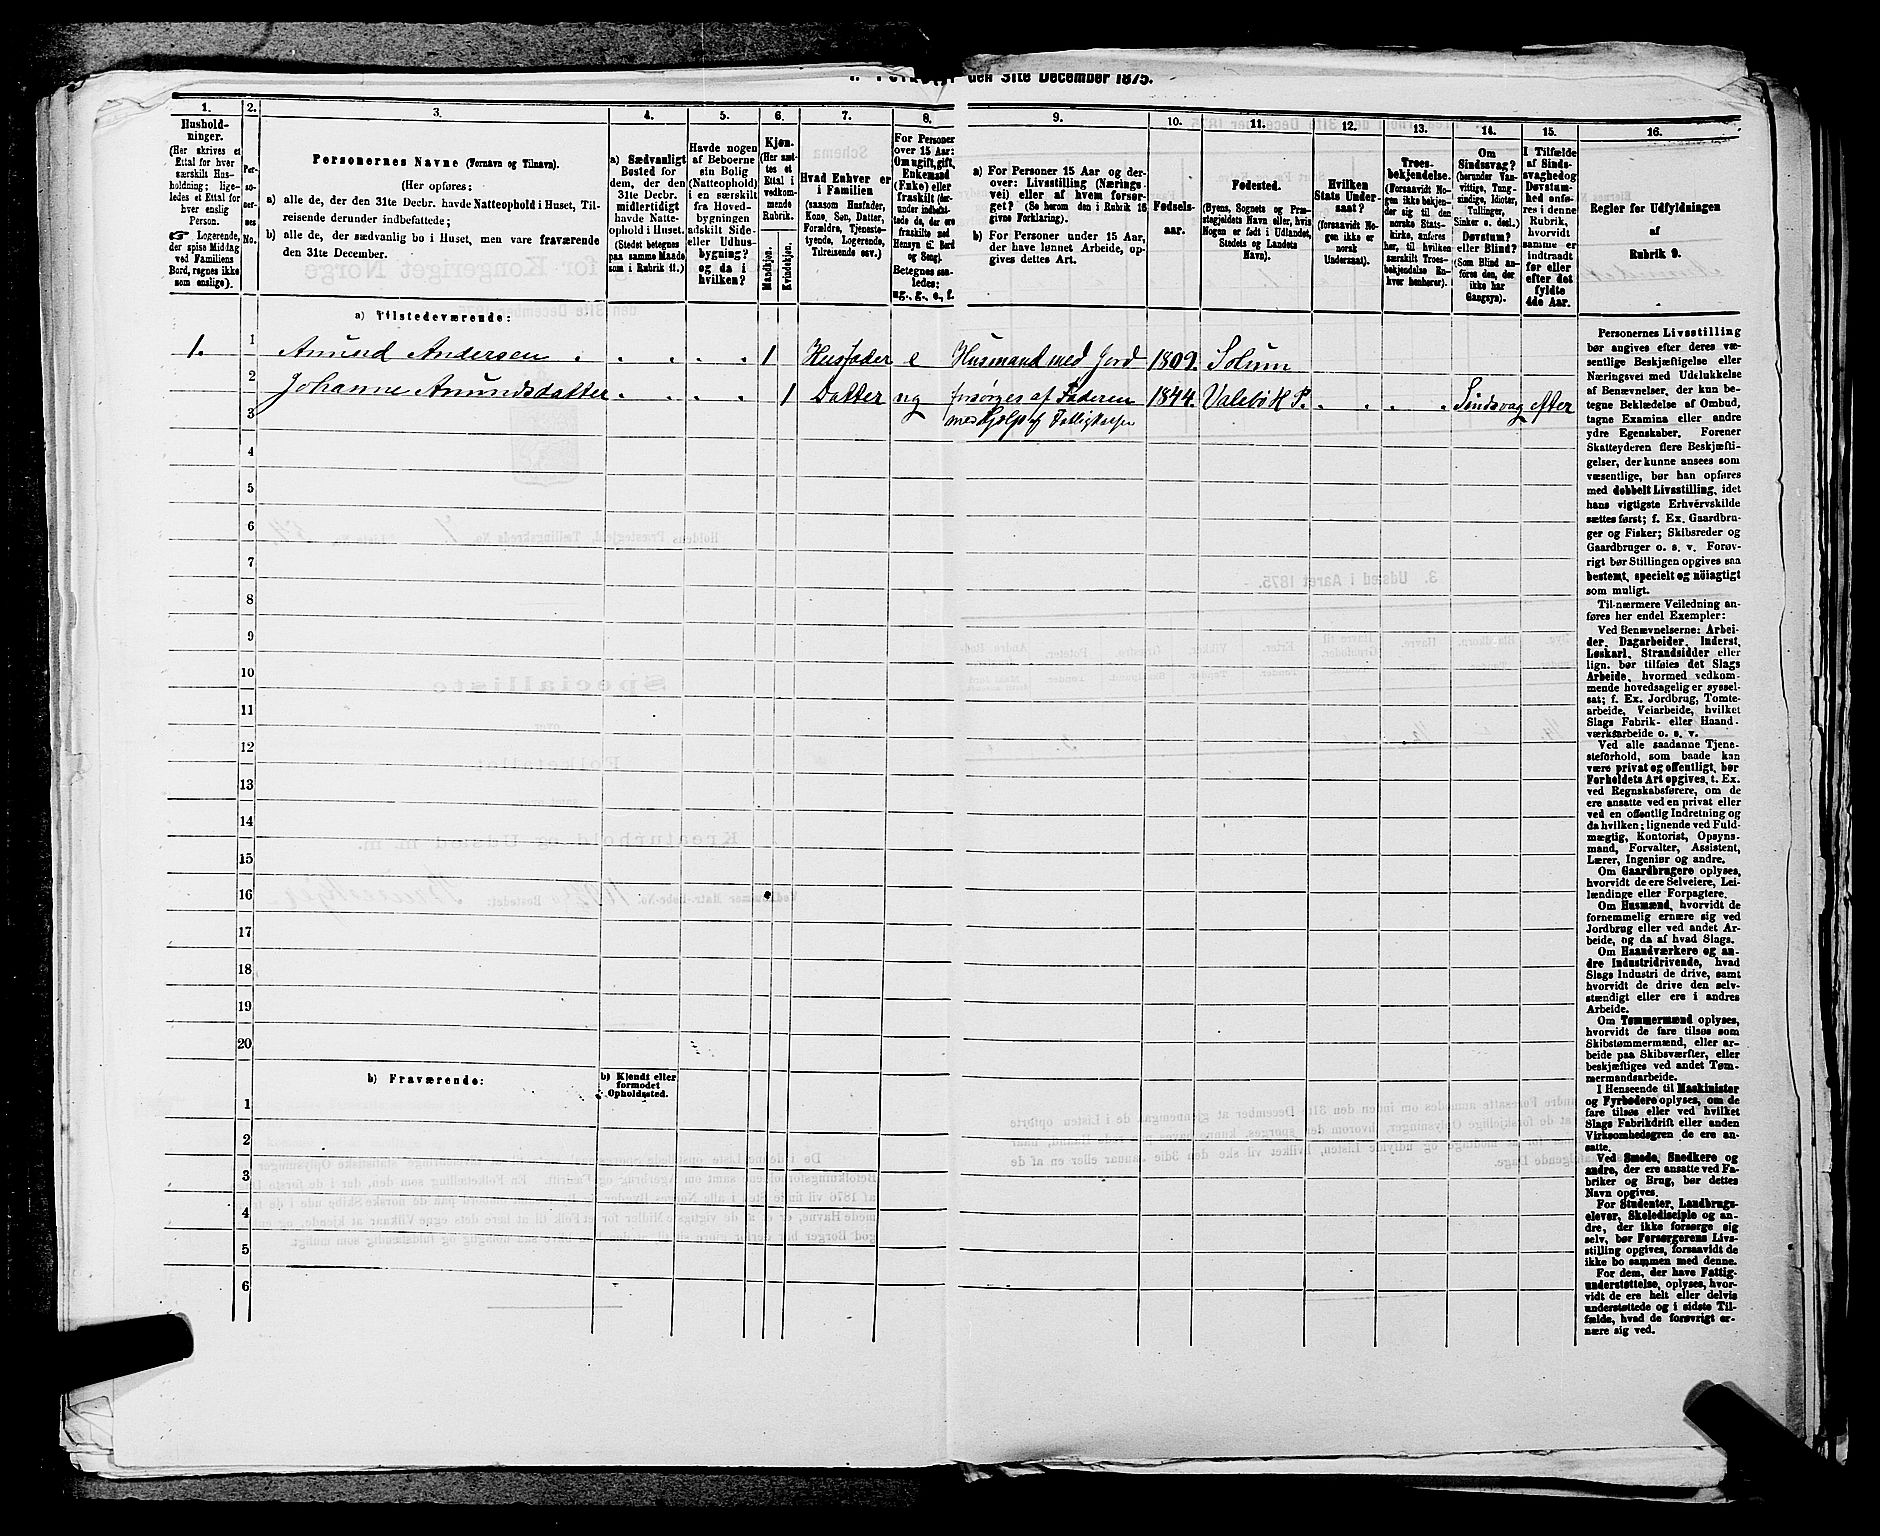 den 31te December 1875.
1.
Hushold-
ninger.
(Her skrives et
Ettal for hver
særskilt Hus-
holdning; lige-
ledes et Ettal for
hver enslig
Person.
☞ Logerende,
der spise Middag
ved Familiens
Bord, regnes ikke
som enslige).
2.
Per-
so-
ner-
nes
No.
3.
Personernes Navne (Fornavn og Tilnavn).
(Her opføres:
a) alle de, der den 31te Decbr. havde Natteophold i Huset, Til-
reisende derunder indbefattede;
b) alle de, der sædvanlig bo i Huset, men vare fraværende
den 31te December.
4.
a) Sædvanligt
Bosted for
dem, der den
31te Decbr.
midlertidigt
havde Natte-
ophold i Huset.
(Stedet betegnes
paa samme Maade
som i Rubrik 11.)
5.
Havde nogen
af Beboerne
sin Bolig
(Natteophold)
i en særskilt
fra Hoved-
bygningen
adskilt Side-
eller Udhus-
bygning?
og da i
hvilken?
6.
Kjøn.
(Her sæt-
tes et
Ettal i
vedkom-
mende
Rubrik.
Mandkjøn.
Kvindekjøn.
7.
Hvad Enhver er
i Familien
(saasom Husfader,
Kone, Søn, Datter,
Forældre, Tjeneste-
tyende, Logerende,
Tilreisende osv.)
8.
For Personer
over 15 Aar:
Om ugift, gift,
Enkemand
(Enke) eller
fraskilt (der-
under indbefat-
tede de, der ere
fraskilte med
Hensyn til Bord
og Seng).
Betegnes saa-
ledes:
ug., g., e., f.
9.
a) For Personer 15 Aar og der-
over: Livsstilling (Nærings-
vei) eller af hvem forsør-
get? (Se herom den i Rubrik 16
givne Forklaring).
b) For Personer under 15 Aar,
der have lønnet Arbeide, op-
gives dettes Art.
10.
Fødsels-
aar.
11.
Fødested.
(Byens, Sognets og Præ-
stegjeldets Navn eller, hvis
Nogen er født i Udlandet,
Stedets og Landets
Navn).
12.
Hvilken
Stats Under-
saat?
(forsaavidt No-
gen ikke er
norsk
Undersaat).
13.
Troes-
bekjendelse.
(Forsaavidt No-
gen ikke bekjen-
der sig til den
norske Stats-
kirke, anføres
her, til hvilken
særskilt Troes-
bekjendelse En-
hver henhører).
14.
Om
Sindssvag?
(herunder Van-
vittige, Tung-
sindige, Idioter,
Tullinger,
Sinker o. desl.)
Døvstum?
eller Blind?
(Som Blind an-
føres den, der
ikke har
Gangsyn).
15.
I Tilfælde
af Sinds-
svaghed og
Døvstum-
hed anfø-
res i denne
Rubrik,
hvorvidt
samme er
indtraadt
før eller
efter det
fyldte
4de Aar.
16.
Regler for Udfyldningen
af
Rubrik 9.
a) Tilstedeværende:
1. 1 Amund Andersen . . . . . 1 Husfader e Husmand med Jord 1809. Solum
2 Johanne Amundsdatter . . . . 1 Datter ug forsørges af Faderen 1844. Valebø H. P. . . . . Sindsvag efter
3 med Hjelp af Fattigkassen
4
5
6
7
8
9
10
11
12
13
14
15
16
17
18
19
20
b) Fraværende:
b) Kjendt eller
formodet
Opholdssted.
1
2
3
4
5
6
Personernes Livsstilling
bør angives efter deres væ-
sentlige Beskjæftigelse eller
Næringsvei med Udelukkelse
af Benævnelser, der kun be-
tegne Beklædelse af Ombud,
tagne Examina eller andre
ydre Egenskaber. Forener
Skatteyderen flere Beskjæfti-
gelser, der kunne ansees som
væsentlige, bør han opføres
med dobbelt Livsstilling, idet
hans vigtigste Erhvervskilde
sættes først; f. Ex. Gaardbru-
ger og Fisker; Skibsreder og
Gaardbruger o. s. v. Forøv-
rigt bør Stillingen opgives saa
bestemt, specielt og nöiagtigt
som muligt.
Til nærmere Veiledning an-
føres her endel Exempler:
Ved Benævnelserne: Arbei-
der, Dagarbeider, Inderst,
Løskarl, Strandsidder eller
lign. bør tilføies det Slags
Arbeide, hvormed vedkom-
mende hovedsagelig er syssel-
sat; f. Ex. Jordbrug, Tomte-
arbeide, Veiarbeide, hvilket
Slags Fabrik- eller Haand-
værksarbeide o. s. v.
Ved alle saadanne Tjene-
steforhold, som baade kan
være privat og offentligt, bør
Forholdets Art opgives, f. Ex.
ved Regnskabsførere, om de
ere ansatte ved en privat eller
ved en offentlig Indretning og
da hvilken; lignende ved Fuld-
mægtig, Kontorist, Opsyns-
mand, Forvalter, Assistent,
Lærer, Ingeniør og andre.
Om Gaardbrugere oplyses,
hvorvidt de ere Selveiere, Lei-
lændinge eller Forpagtere.
Om Husmænd, hvorvidt de
fornemmelig ernære sig ved
Jordbrug eller ved andet Ar-
beide, og da af hvad Slags.
Om Haandværkere og an-
dre Industridrivende, hvad
Slags Industri de drive, samt
hvorvidt de drive den selv-
stændigt eller ere i andres
Arbeide.
Om Tømmermænd oplyses,
hvorvidt de fare tilsøs som
Skibstømmermænd, eller ar-
beide paa Skibsværfter, eller
beskjæftiges ved andet Tøm-
mermandsarbeide.
I Henseende til Maskinister
og Fyrbødere oplyses, om de
fare tilsøs eller ved hvilket
Slags Fabrikdrift eller anden
Virksomhedsgren de ere an-
satte.
Ved Smede, Snedkere og
andre, der ere ansatte ved Fa-
briker og Brug, bør dettes
Navn opgives.
For Studenter, Landbrugs-
elever, Skoledisciple og an-
dre, der ikke forsørge sig
selv, bør Forsørgerens Livs-
stilling opgives, forsaavidt de
ikke bo sammen med denne.
For dem, der have Fattig-
understøttelse, oplyses, hvor-
vidt de ere helt eller delvis
understøttede og i sidste Til-
fælde, hvad de forøvrigt er-
nære sig ved.